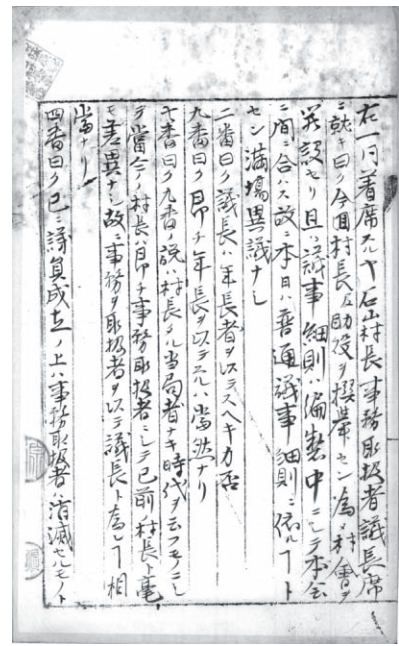 右一同着席スルヤ石山村長事務取扱者議長席
ニ就キ曰ク今回村長及助役ヲ撰挙セン為メ村会ヲ
開設セリ且ツ議事細則ハ編製中ニシテ本会
ニ間ニ合ハス故ニ本日ハ普通議事細則ニ依ルヿト
セン満場異議ナシ
二番曰ク議長ハ年長者ヲ以テスヘキカ否
九番曰ク即チ年長ヲ以テスルハ当然ナリ
十番曰ク九番ノ説ハ村長タル当局者ナキ時代ヲ云フモノニシ
テ當今ノ村長ハ即チ事務取扱者ニシテ已前村長ト毫
モ差異ナシ故ニ事務取扱者ヲ以テ議長ト為シテ相
當ナリ
四番曰ク已ニ議員成立ノ上ハ事務取扱者ハ消滅セルモノト